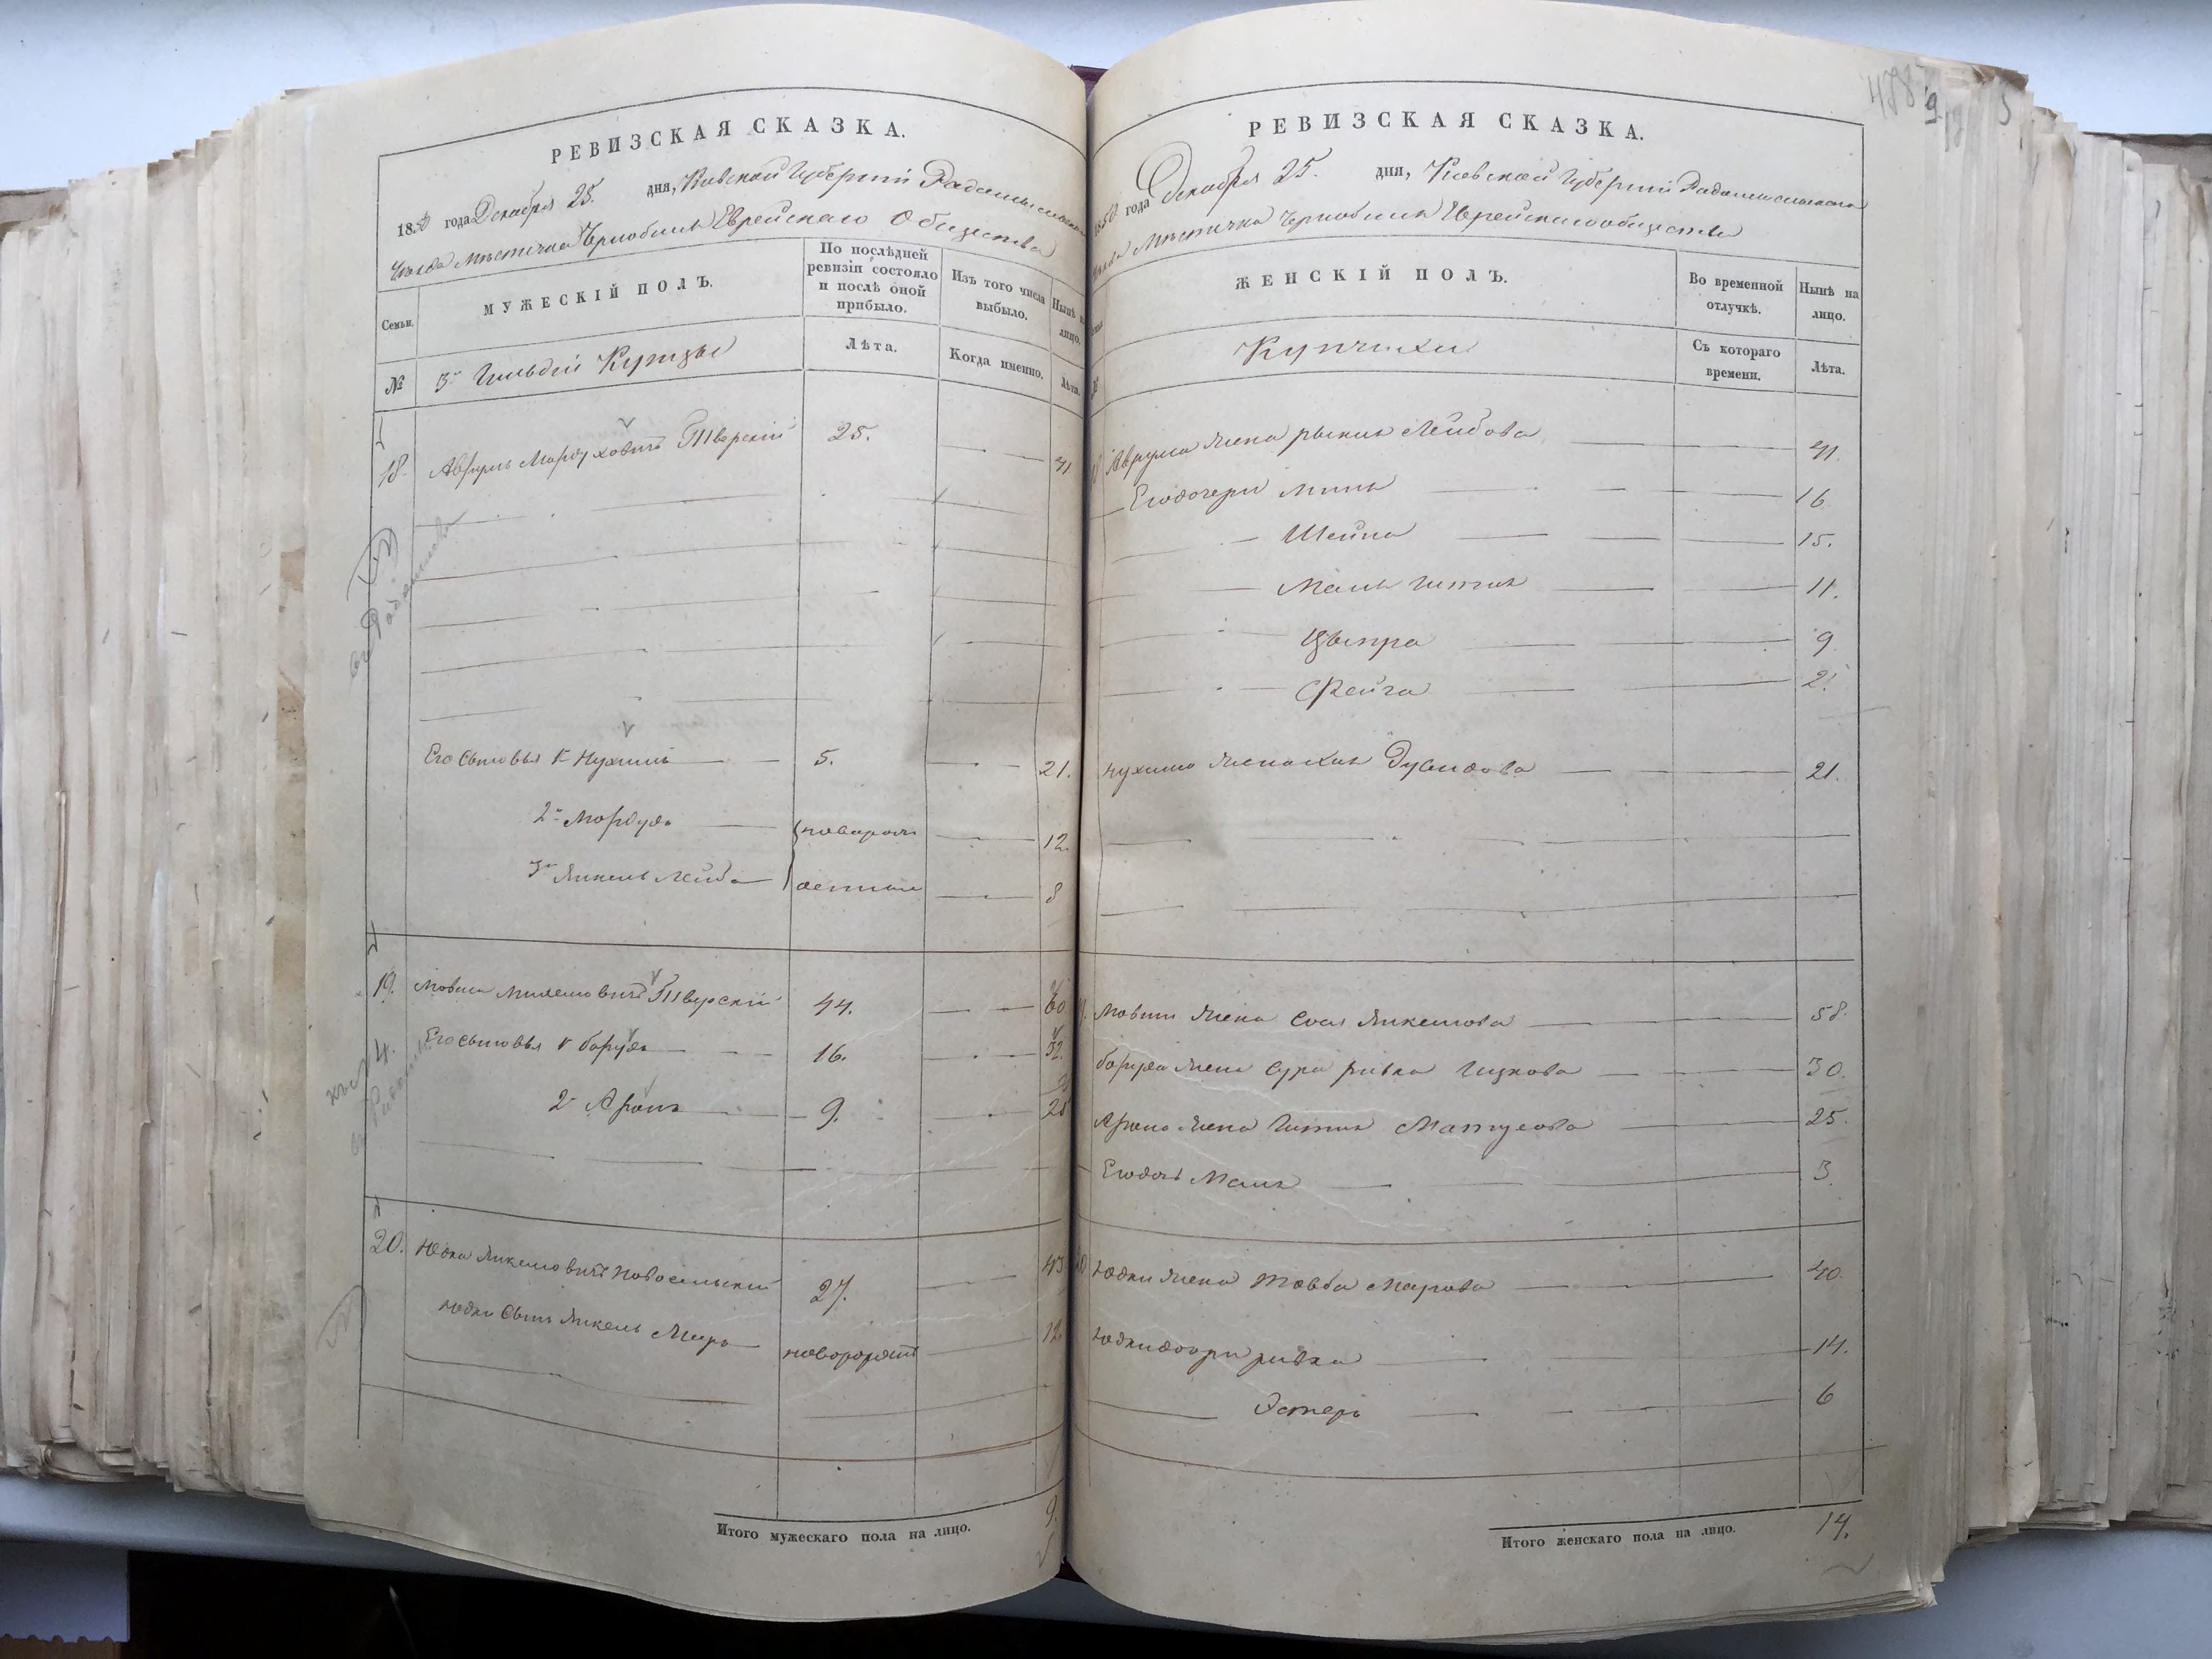 РЕВИЗСКАЯ СКАЗКА.
1850 года Декабря 25. дня, Киевской Губернии Радомысльскаго
Уезда местечка Чернобыля Еврейскаго Общества
Семьи.
МУЖЕСКІЙ ПОЛЪ.
По послѣдней ревизіи состояло и послѣ оной прибыло.
Изъ того числа выбыло.
Нынѣ на лицо.
№
3й Гильдіи Купцы
Лѣта.
Когда именно.
Лѣта.
18. Аврумъ Мордуховичъ Тверскій 25. 41
Его сыновья 1й Нухимъ 5. 21.
2й Мордухъ новорож 12.
3й Янкель Лейба денные 8
19. Мовша Мителевичъ Тверскій 44. 60
4. Его сыновья 1й Борухъ 16. 32.
2й Аронъ 9. 25
20. Юдка Янкелевичъ Новосельскій 27. 43
Юдки сынъ Янкель Мееръ новорожден 12.
Итого мужескаго пола на лицо. 9.
478
9
РЕВИЗСКАЯ СКАЗКА.
1850 года Декабря 25. дня, Киевской Губернии Радомысльскаго
Уезда Местечка Чернобыля Еврейскаго общества
ЖЕНСКІЙ ПОЛЪ.
Во временной отлучкѣ.
Нынѣ на лицо.
Купчихи
Съ котораго времени.
Лѣта.
Аврума жена Лейбова 41.
Его дочери 16
Шейна 15.
Маля Гитля 11.
Цыпра 9
Фейга 2.
Нухима жена Хая Дувидова 21.
Мовши жена Сося Янкелева 58.
Боруха жена Сура Ривка Ицкова 30.
Арона жена Гитля 25.
Его дочь Маля 3.
20 Юдки жена Товба Марова 40.
Юдки дочри Ривка 14.
Эстеръ 6
Итого женскаго пола на лицо. 14.